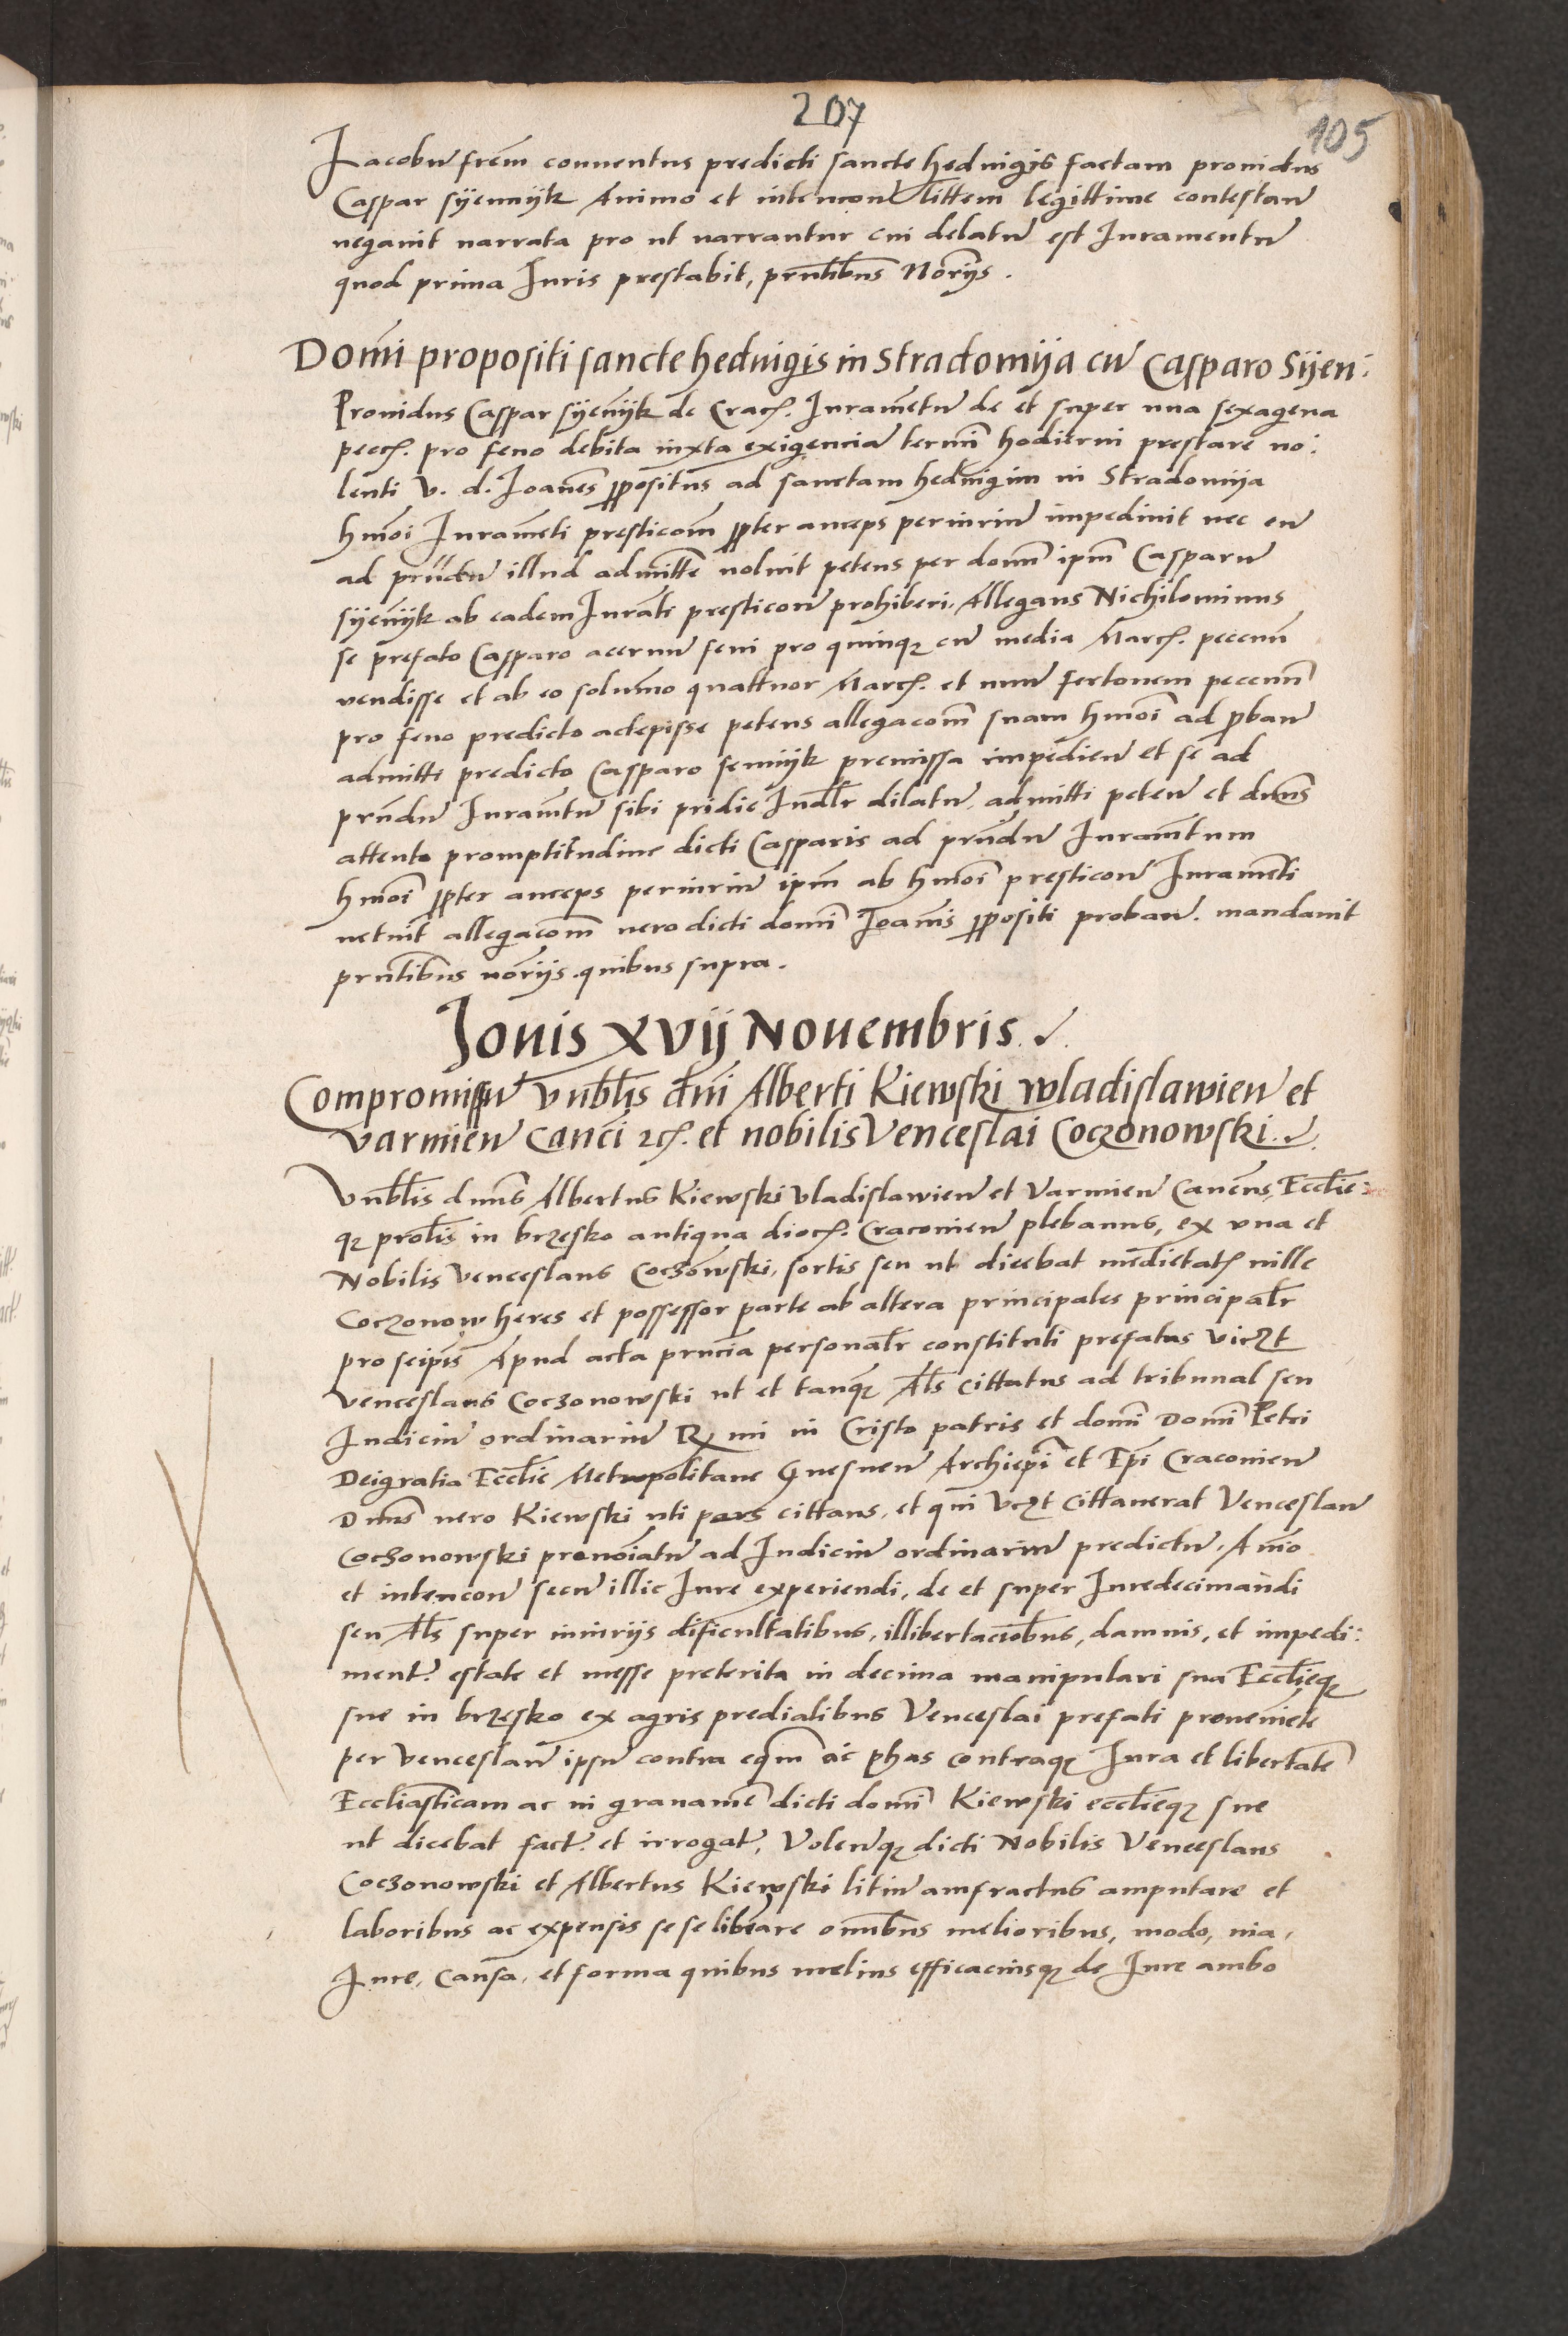 207
105
Jacobum frem̄ conventus predicti sancte hedvigis factam providus
Caspar syennyk Animo et intencione littem legittime contestan̄
negavit narrata pro ut narrantur cui delatū est Iuramentū
quod prima Iuris prestabit, prn̄tibus Nor̄ijs.
Domī propositi sancte hedvigis in Stradomija cū Casparo Sijen:
Providus Caspar syen̄yk de Crac. Iuram̄etū de et super una sexagena
pecc. pro feno debita iuxta exigenciā termī hodierni prestare vo:
lenti V. d. Joan̄es p̄positus ad sanctam hedvigim in Stradomija
hm̄oi Iuram̄eti presticom̄ p̄pter anceps periuriū impedivit nec eū
ad prn̄dū illud admitt̄e voluit petens per domī ipm̄ Casparū
syen̄yk ab eadem Iuram̄ti presticon̄e prohiberi, Allegans Nichilominus
se prefato Casparo acervū feni pro quinq; cū media Marc. pecun̄
vendisse et ab eo solum̄o quattuor Marc. et unū fertonem pecun̄
pro feno predicto accepisse petens allegacom̄ suam hm̄oi ad p̄ban̄
admitti predicto Casparo sennyk premissa impedien̄ et se ad
prn̄dū Iuram̄tū sibi pridie Iudl̄r dilatū admitti peten̄ et dn̄us
attenta promptitudine dicti Casparis ad prn̄dū Iuram̄tum
hm̄oi p̄pter anceps periuriū ipm̄ ab hm̄oi presticon̄e Iuramēti
vetuit allegacom̄ vero dicti domī Joan̄is p̄positi proban̄. mandavit
prn̄tibus nor̄ijs quibus supra.
Jovis XVIJ Novembris.
Compromissū Vnbl̄is dn̄i Alberti Kiewski wladislawien̄ et
varmien̄ Can̄ci &c. et nobilis Venceslai Coczonowski.
Vnbl̄is dn̄us Albertus Kiewski Vladislawien̄ et Varmien̄ Canēus, Eccl̄ie:
q; prol̄is in brzesko antiqua dioc. Craconien̄ plebanus, ex una et
Nobilis Venceslaus Coczōwski, sortis seu ut dicebat medietat̄ ville
Coczonow heres et possessor parte ab altera principales principal̄r
pro seip̄is Apud acta prn̄cia personal̄r constituti prefatus vicz̄t
Venceslaus Coczonowski ut et tanq̄; Al̄s cittatus ad tribunal seu
Iudiciū ordinariū R mi in Cristo patris et domī Domī Petri
Dei gratia Eccl̄ie Metropolitane Gnesnen̄ Archiep̄i et Ep̄i Craconien̄
Dn̄us vero Kiewski uti pars cittans, et qui Vcz̄t cittaverat Venceslaū
Coczonowski prenoīatū ad Iudiciū ordinariū predictū, Aīmo
et intencon̄e secū illic Iure experiendi, de et super Iure decimandi
seu Al̄s super iniurijs dificultatibus, illibertaciōbus, damnis, et impedi:
ment. estate et messe preterita in decima manipulari sua Eccl̄ieq;
sue in brzesko ex agris predialibus Venceslai prefati provenīete
per Venceslaū ipsū contra equm̄ ac phas contraq; Iura et libertatē
Eccliāsticam ac in gravamē dicti domī Kiewski eccl̄ieq; sue
ut dicebat fact. et irrogat, Volen̄q; dicti Nobilis Venceslaus
Coczonowski et Albertus Kiewski litiū amfractus amputare et
laboribus ac expensis sese liberare omībus melioribus, modo, via,
Iure, causa, et forma quibus melius efficaciusq; de Iure ambo